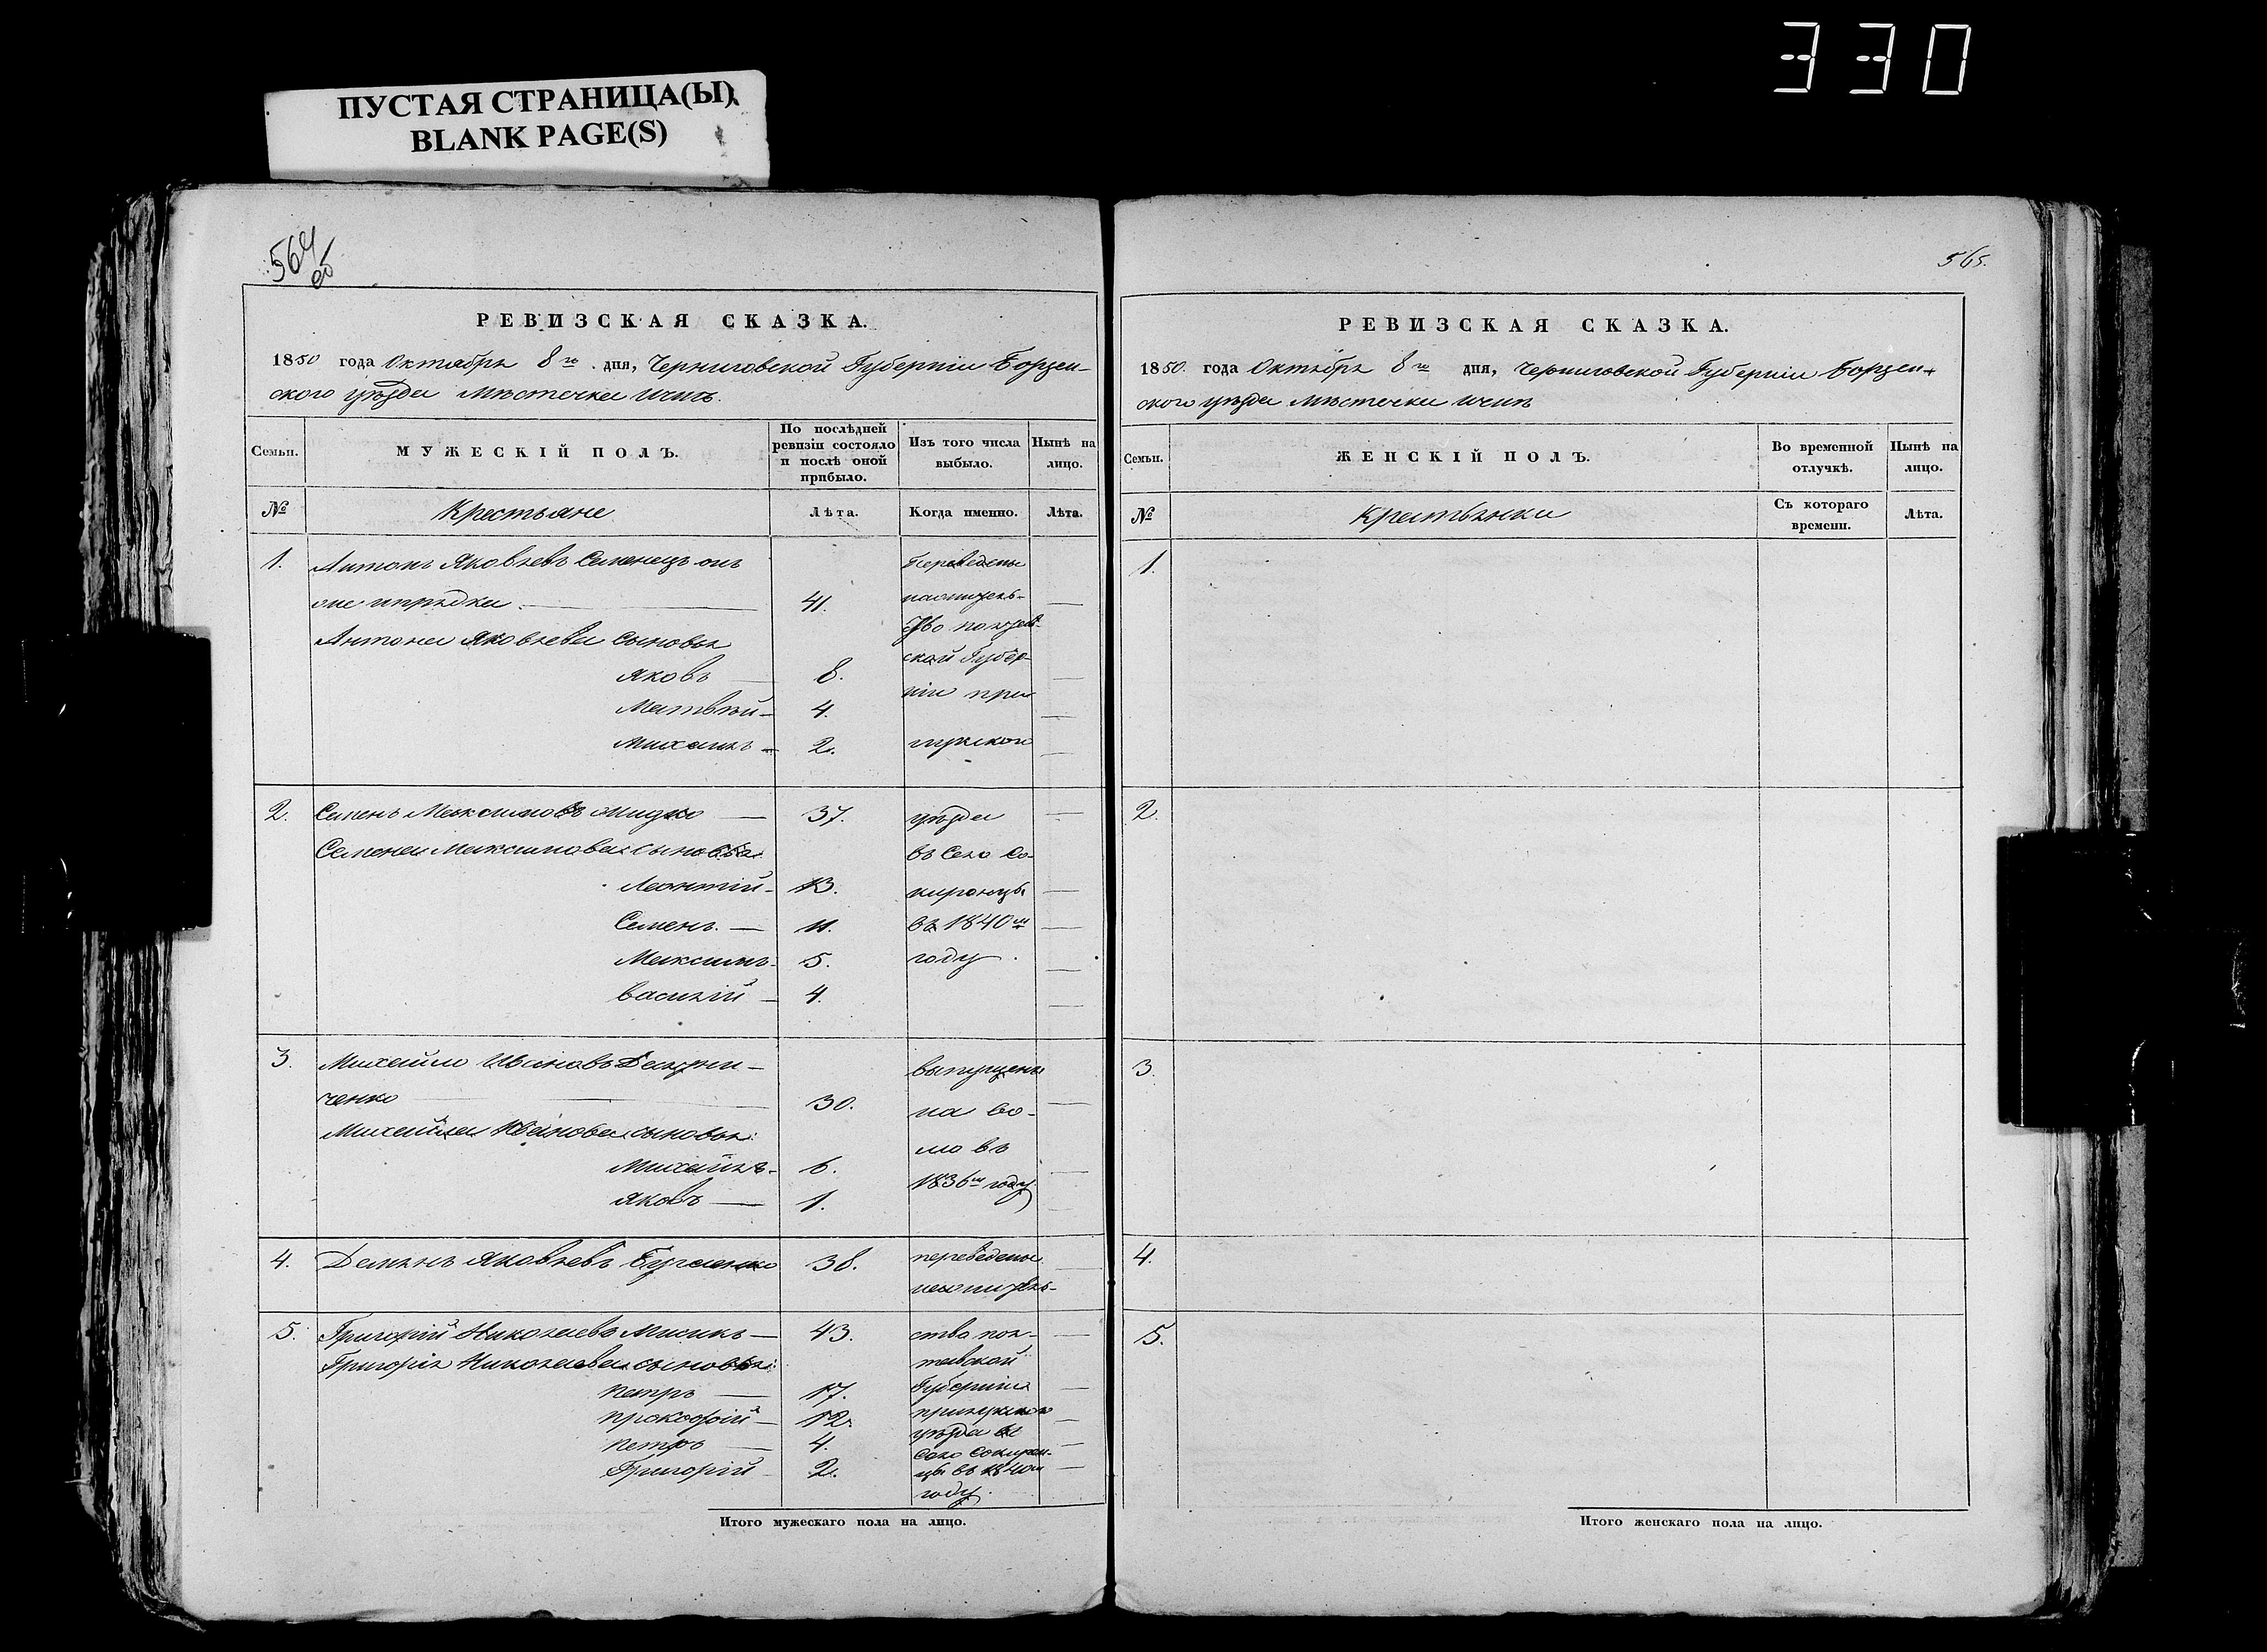 330
ПУСТАЯ СТРАНИЦА(Ы)
BLANK PAGE(S)
564
об
РЕВИЗСКАЯ СКАЗКА.
1850 года Октября 8го дня, Черниговской Губерніи Борзен-
ского уѣзда Мѣстечка Ични.
Семьи.
МУЖЕСКІЙ ПОЛЪ.
По послѣдней
ревизіи состояло
и послѣ оной
прибыло.
Изъ того числа
выбыло.
Нынѣ на
лицо.
№
Крестьяне
Лѣта.
Когда именно.
Лѣта.
1. Антонъ Яковлевъ Семенецъ онъ
41.
Антона Яковлева сыновья
Яковъ 8.
Матвѣй 4.
Михаилъ 2.
Переведены
ской Губер-
ніи при
лукской
2. Семенъ Максимовъ 37.
Семена Максимова сыновья
Леонтій 13.
Семенъ. 11.
Максимъ 5.
Василій 4.
уѣзда
въ Село Со-
киронцы
въ 1840м
году.
3. Михайло Ивановъ
ченко 30.
Михайла Иванова сыновья:
Михаилъ 6.
Яковъ 1.
выпущены
на во-
лю въ
1836м году
4. Демьянъ Яковлевъ 38.
переведены
5. Григорій Николаевъ Мисикъ 43.
Григорія Николаева сыновья:
Петръ 17.
Прокофій 12.
Петръ 4.
Григорій 2.
ство пол-
тавской
Губерніи
прилукского
уѣзда въ
Село Сокирен-
цы въ 1840м
году.
Итого мужескаго пола на лицо.
565.
РЕВИЗСКАЯ СКАЗКА.
1850 года Октября 8го дня, Черниговской Губерніи Борзен-
ского уѣзда Мѣстечка Ични
Семьи.
ЖЕНСКІЙ ПОЛЪ.
Во временной
отлучкѣ.
Нынѣ на
лицо.
№
Крестьянки
Съ котораго
времени.
Лѣта.
1.
2.
3.
4.
5.
Итого женскаго пола на лицо.